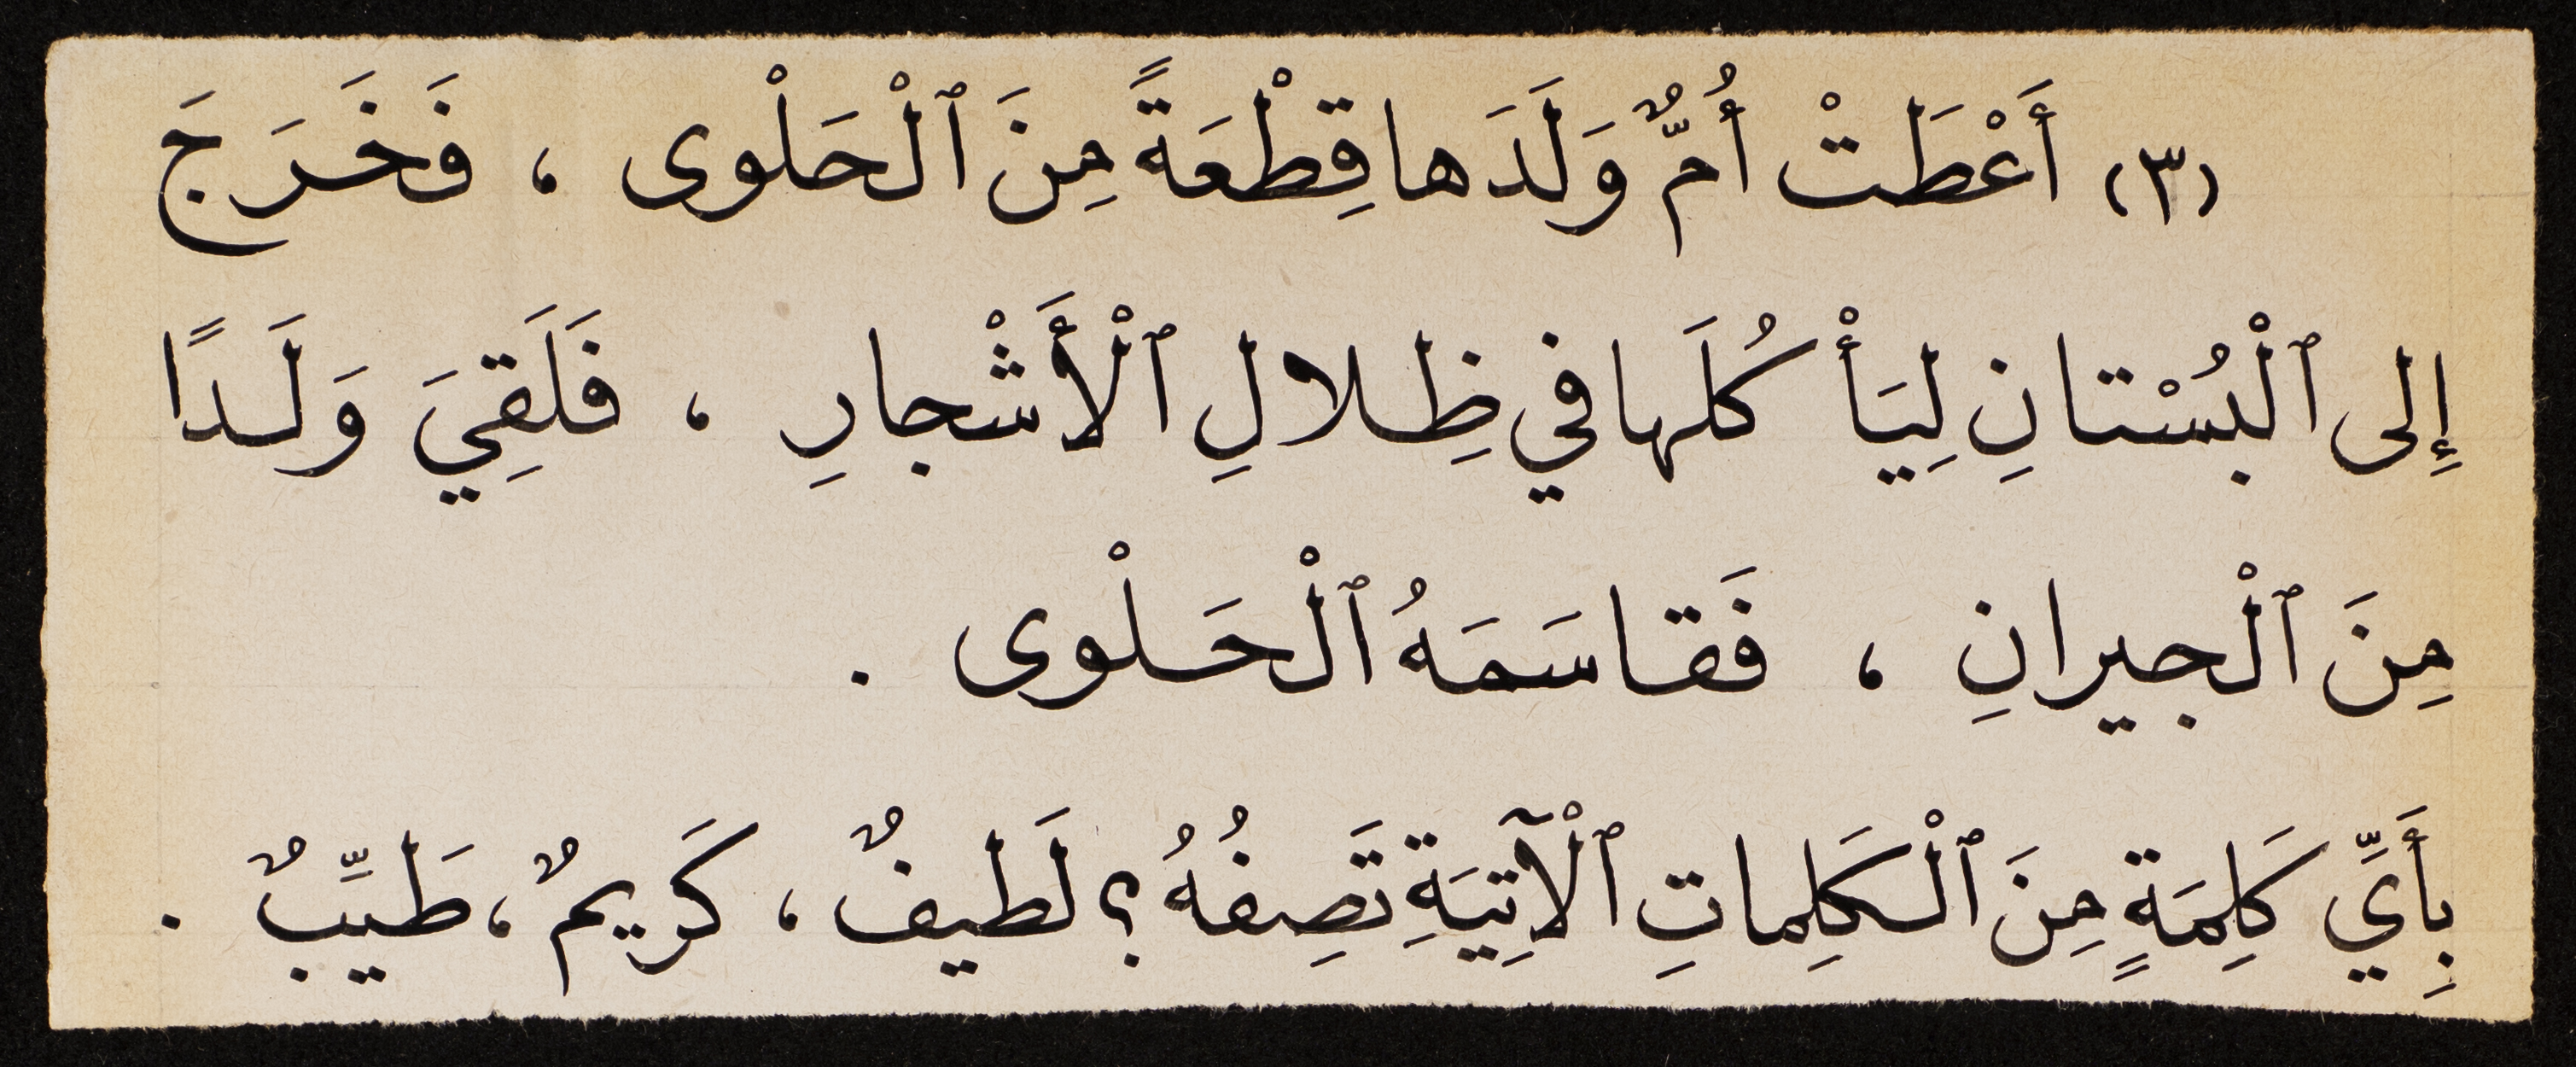 (٣) أَعْطَتْ أُمٌّ وَلَدَها قِطْعَةً مِنَ ٱلْحَلْوى ، فَخَرَجَ
إِلى ٱلْبُسْتانِ لِيَأْكُلَها في ظِلالِ ٱلْأَشْجارِ ، فَلَقِيَ وَلَدًا
مِنَ ٱلْجيرانِ ، فَقاسَمَهُ ٱلْحَلْوى .
بِأَيِّ كَلِمَةٍ مِنَ ٱلْكَلِماتِ ٱلْآتِيَةِ تَصِفُهُ ؟ لَطيفٌ ، كَريمٌ ، طَيِّبٌ .